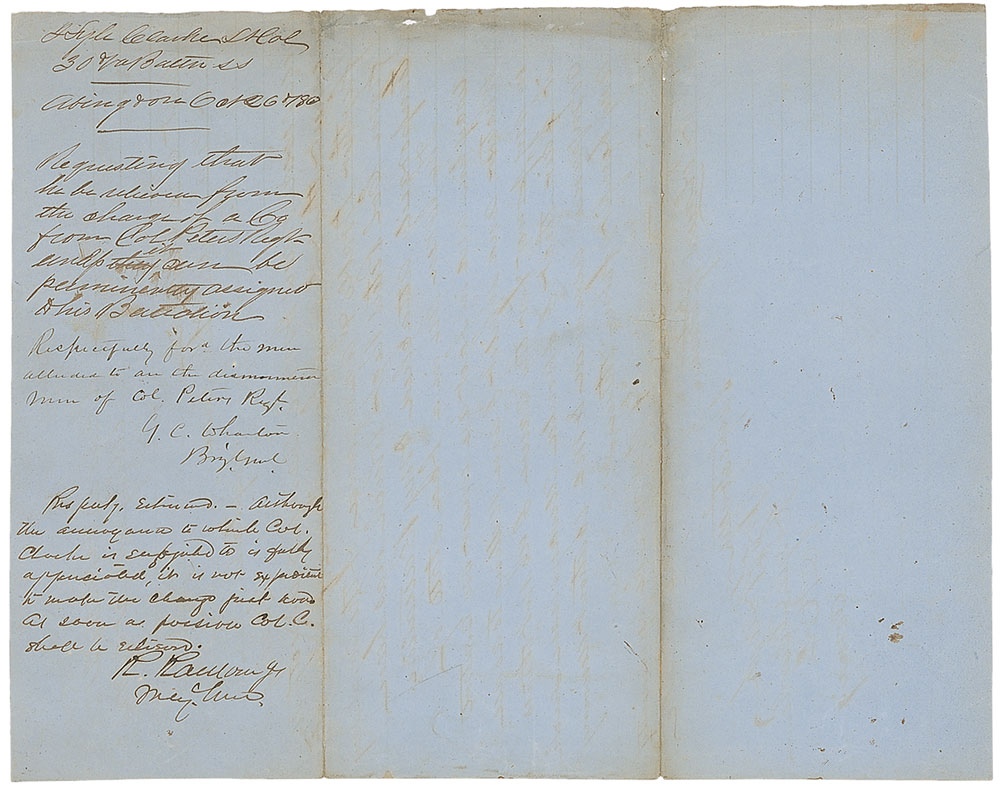 J Lyle Clarke Lt Col
30th Va Battn SS
Abingdon Oct 26th 186
Requesting that
he be relieved from
the charge of a Co
from Col. Peters Regt
until it can be
perminently assigned
to his Battalion
Respectfully ford. the men
alluded to are the dismounted
men of Col. Peters Regt.
G. C. Wharton
Brig. Genl.
Respy. returned. — Although
the annoyance to which Col.
Clarke is subjected to is fully
appreciated, it is not expedient
to make the change just now
As soon as possible Col. C.
shall be relieved.
R. Ransom Jr
Maj. Genl.